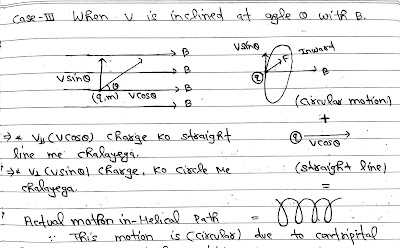 Case-III When V is inclined at agle θ with B.
B
Vsinθ
Inward
Vsinθ
B
F
θ
B
(q)
B
(q,m) Vcosθ
B
(circular motion)
+
⇒* V|| (Vcosθ) Charge ko straight
line me chalayega.
(q) Vcosθ
⇒* V⊥ (Vsinθ) Charge, ko circle me
chalayega.
(straight line)
=
Actual motion in-Helical Path =
∵ This motion is (circular) due to centripital